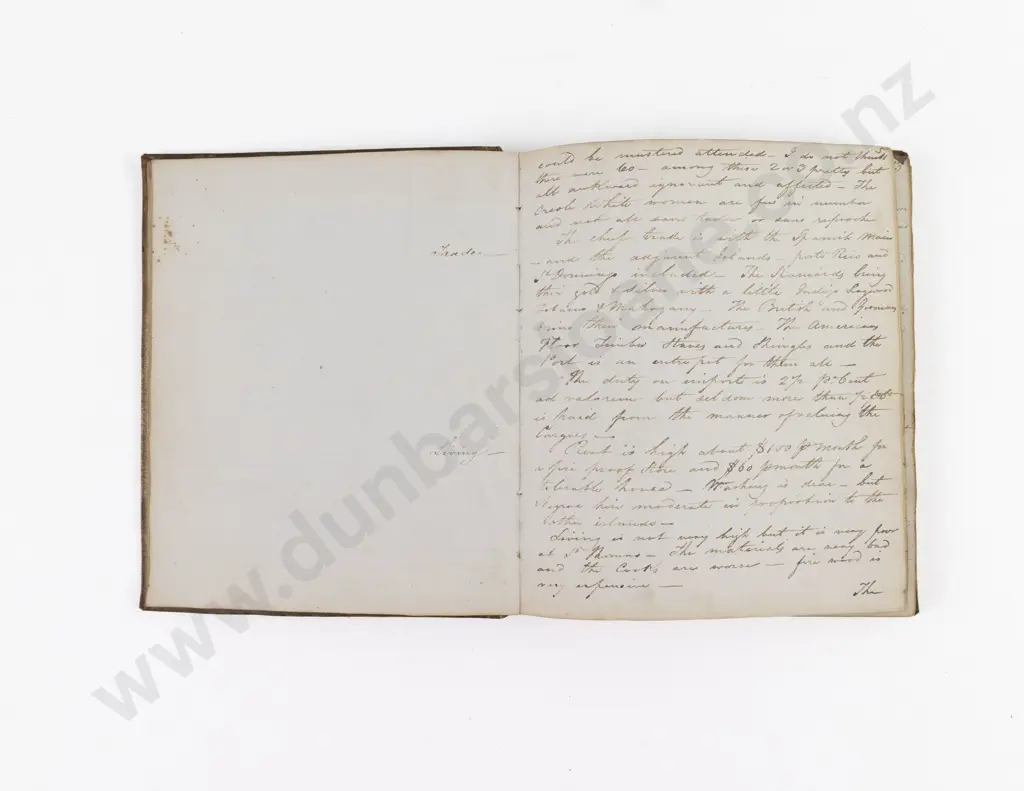 Trade —
Living —
could be mustered attended — I do not think
there were 60 — among these 2 or 3 pretty but
all awkward ignorant and affected — The
Creole White women are few in number
and not all sans or sans reproche
The chief trade is with the Spanish Main
— and the adjacent Islands — porto Rico and
St Domingo included — The Spaniards bring
their gold & silver with a little Indigo Logwood
Tobacco & Mahogany — The British and Germans
bring their manufactures — The Americans
Flour Timber Staves and Shingles and the
Port is an entrepot for them all —
The duty on imports is 2½ pr Cent
ad valorem but seldom more than
is paid from the manner of valuing the
Cargoes —
Rent is high about pr Month for
a fire proof Store and $60 pr month for a
tolerable house — Washing is dear — but
Negroe hire moderate in proportion to the
other islands —
Living is not very high but it is very poor
at St Thomas — The materials are very bad
and the Cooks are worse — fire wood is
very expensive —
The
www.dunbarsloane.co.nz